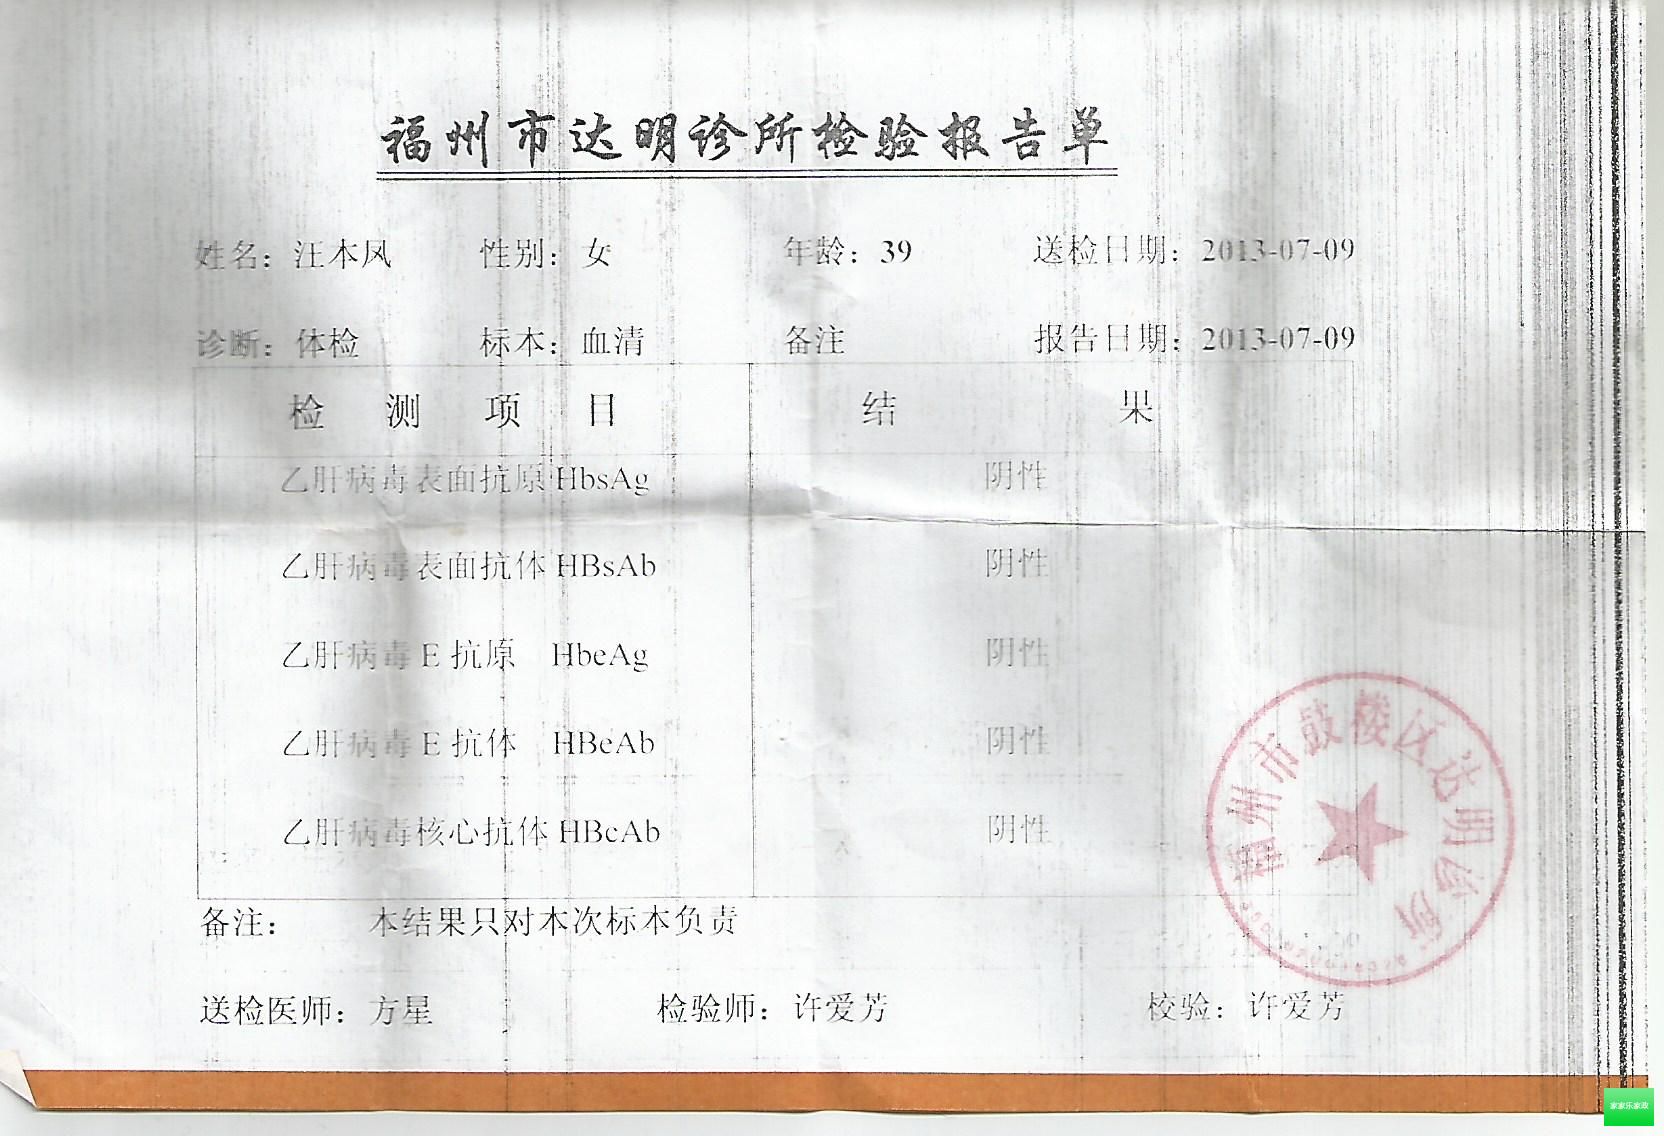 福州市达明诊所检验报告单
姓名：汪本凤 性别：女 年龄：39 送检日期：2013-07-09
诊断：体检 标本：血清 备注 报告日期：2013-07-09
检 测 项 目 结 果
乙肝病毒表面抗原 HbsAg 阴性
乙肝病毒表面抗体 HBsAb 阴性
乙肝病毒 E 抗原 HbeAg 阴性
乙肝病毒 E 抗体 HBeAb 阴性
乙肝病毒核心抗体 HBcAb 阴性
福州市鼓楼区达明诊所
备注： 本结果只对本次标本负责
送检医师：方星 检验师：许爱芳 校验：许爱芳
家家乐家政